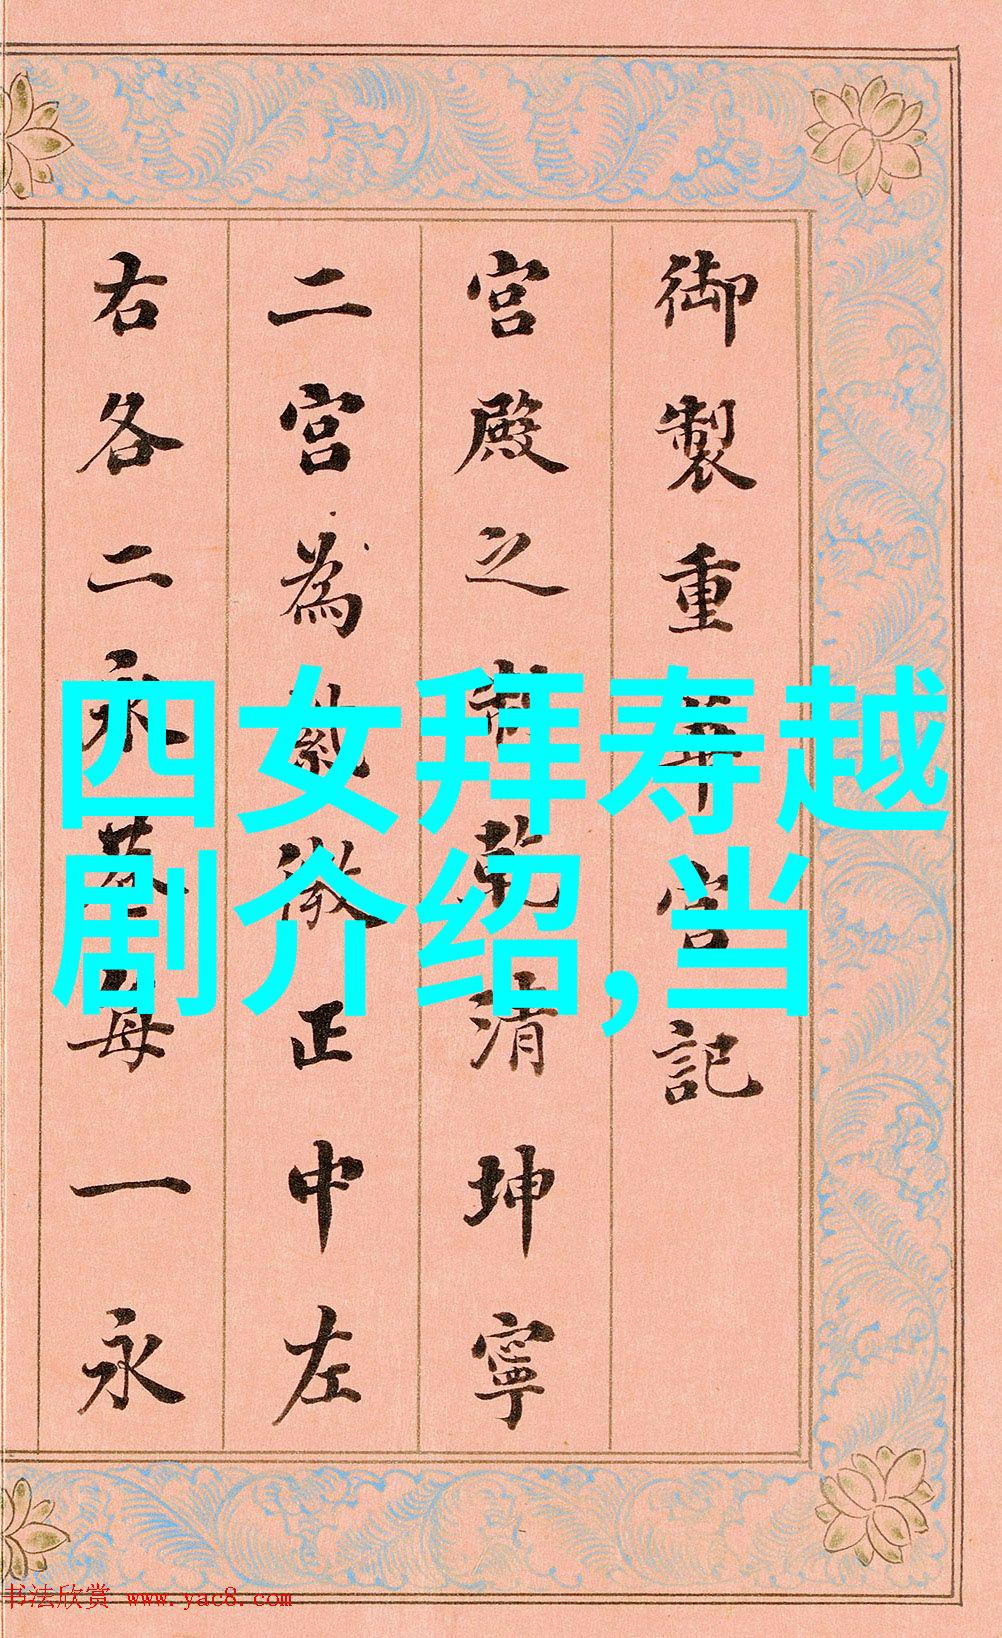 御製重華宮記
宮殿之制乾清坤寧
二宮為紫微正中左
右各二永巷每一永
四女拜寿越
剧介绍,当
书法欣赏 www.yac8.com